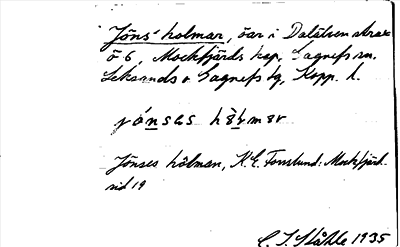 Jöns' holmar, öar i Dalälven strax
ö 6, Mockfjärds kap, Gagnefs sn.
Leksands o. Gagnefs tg, Kopp. l.
Jönses hôlman, K. E. Forsslund: Mockfjärd.
sid 19
C. I. Ståhle 1935